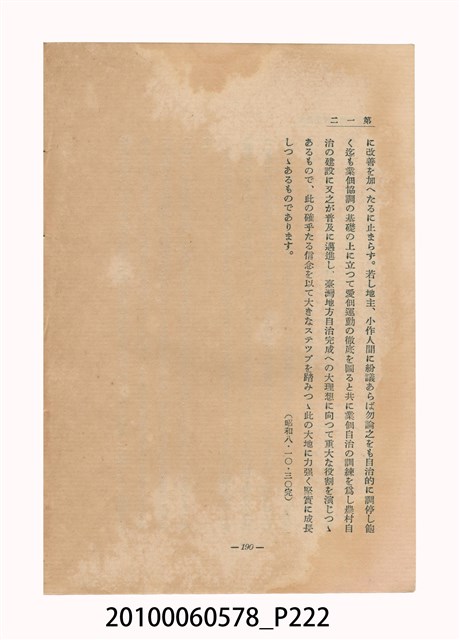 第一二
に改善を加へたるに止まらず。若し地主、小作人間に紛議あらば勿論之をも自治的に調停し飽
く迄も業佃協調の基礎の上に立つて愛佃運動の徹底を圖ると共に業佃自治の訓練を爲し農村自
治の建設に又之が普及に邁進し、臺灣地方自治完成への大理想に向つて重大な役割を演じつゝ
あるもので、此の確乎たる信念を以て大きなステツプを踏みつゝ此の大地に力强く堅實に成長
しつゝあるものであります。
(昭和八・一〇・三〇完)
— 190 —
20100060578_P222